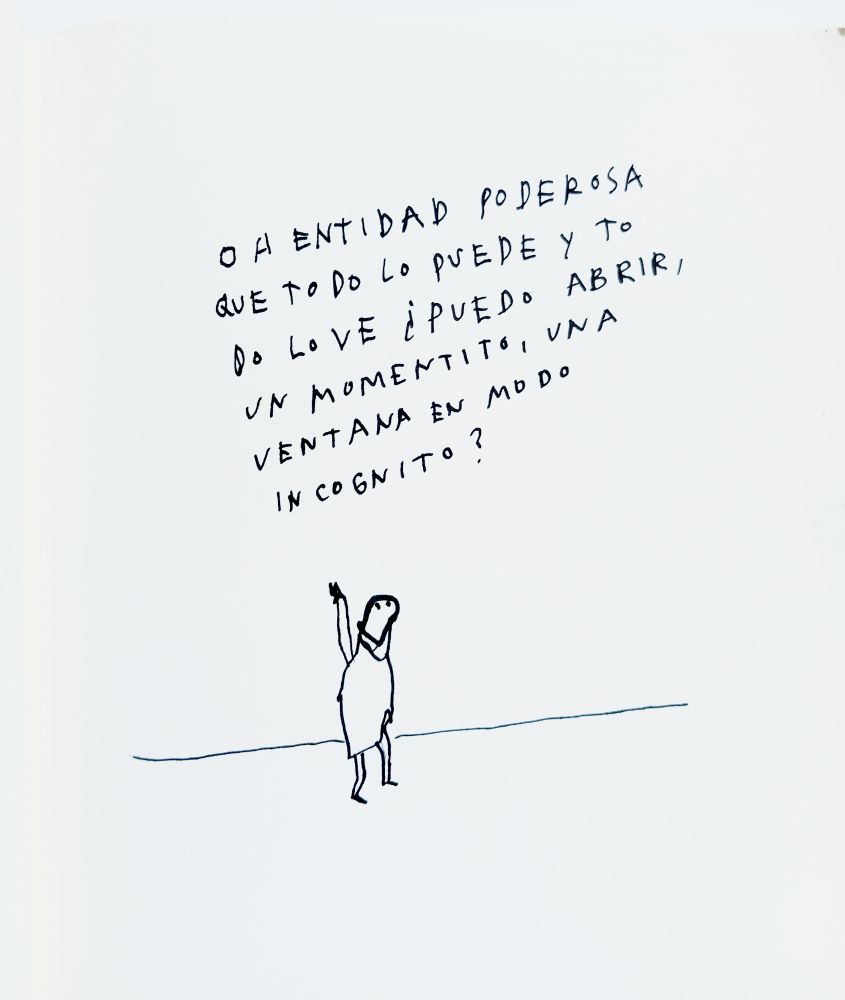 OH ENTIDAD PODEROSA
QUE TODO LO PUEDE Y TO
DO LO VE ¿PUEDO ABRIR,
UN MOMENTITO, UNA
VENTANA EN MODO
INCOGNITO?